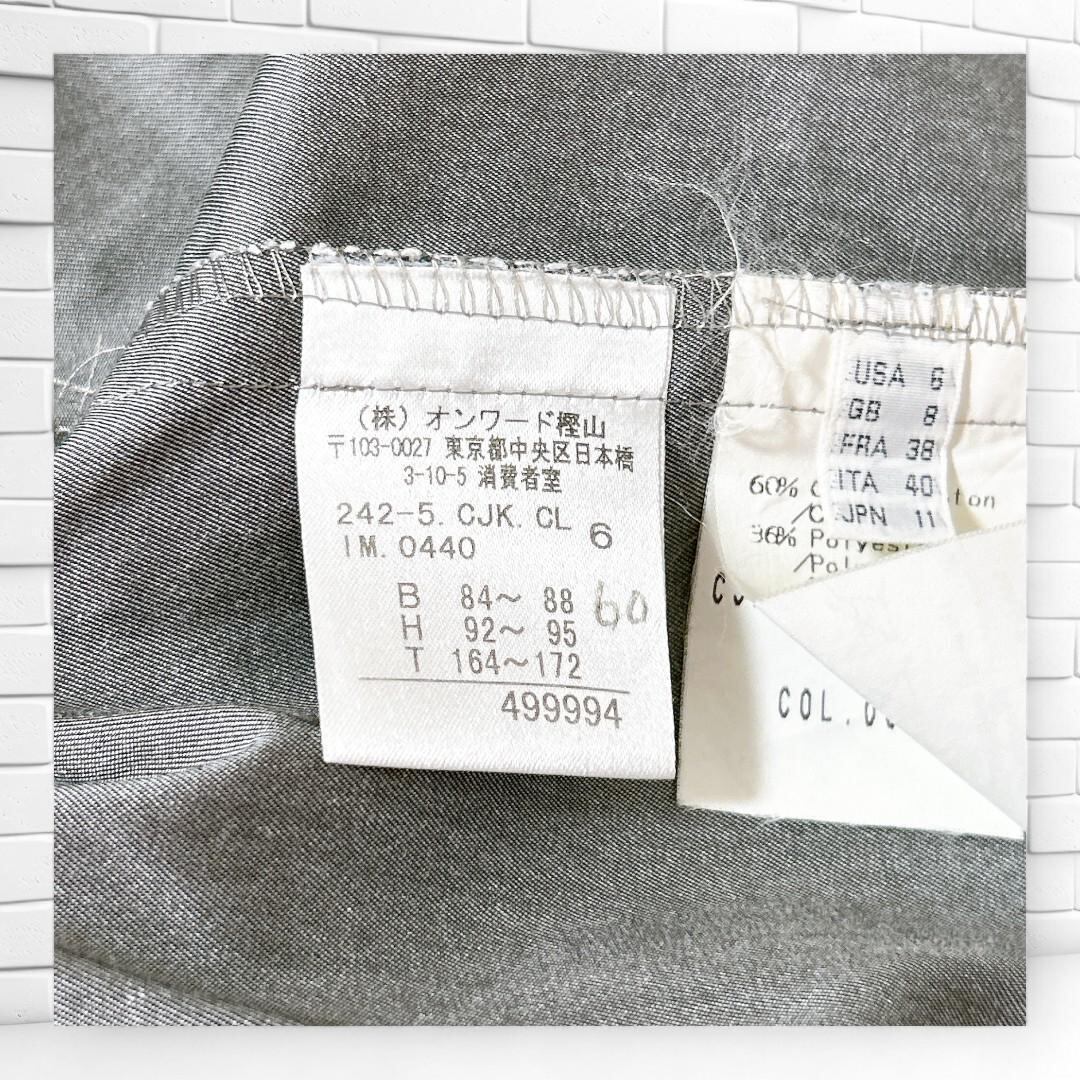 (株)オンワード樫山
〒103-0027 東京都中央区日本橋
3-10-5 消費者室
242-5. CJK. CL 6
IM. 0440
B 84~ 88 60
H 92~ 95
T 164~172
499994
USA 6
GB 8
FRA 38
ITA 40
JPN 11
60%
36%
COL.